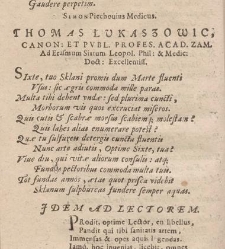 Gaudere perpetim.
SIMON Piechovius Medicus.
THOMAS LUKASZOWIC,
CANON: ET PVBL. PROFES. ACAD. ZAM.
Ad Erasmum Sixtum Leopol. Phil: & Medic:
Doct: Excellentiss.
SIxte, tuo Sklani promis dum Marte fluenti
Vsus: sic ægris commoda mille paras.
Multa tibi debent vndæ: sed plurima cuncti,
Morborum vis quos exacuat miseros.
Qui cutis & scabræ morsus scabiemq; molestam?
Quis labes alias enumerare potest?
Quæ tu sulfuream detergere cuncta fluenti
Nunc arte adiutis, Optime Sixte, tua?
Viue diu, qui vitæ aliorum consulis: atq;
Fundis pectoribus commoda multa tuis.
Tot fundas annos, ætas quot prisca videbit
Sklanum sulphureas fundere semper aquas.
IDEM AD LECTOREM.
PRodit, optime Lector, en libellus,
Pandit qui tibi sanitatis artem,
Immersas & opes aquis Lycœas.
Iamq. hoc inueniat, lector,